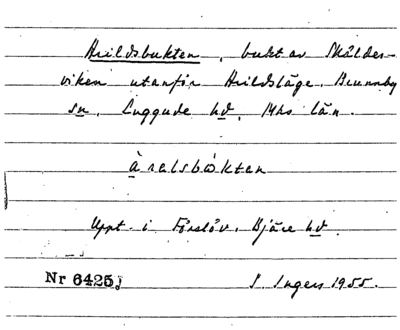 Arildsbukten, bukt av Skälder-
viken utanför Arildsläge, Brunnby
sn, Luggude hd, Mhs län.
àralsbòkten
Uppt. i Förslöv, Bjäre hd.
Nr 6425j S. Ingers 1955.